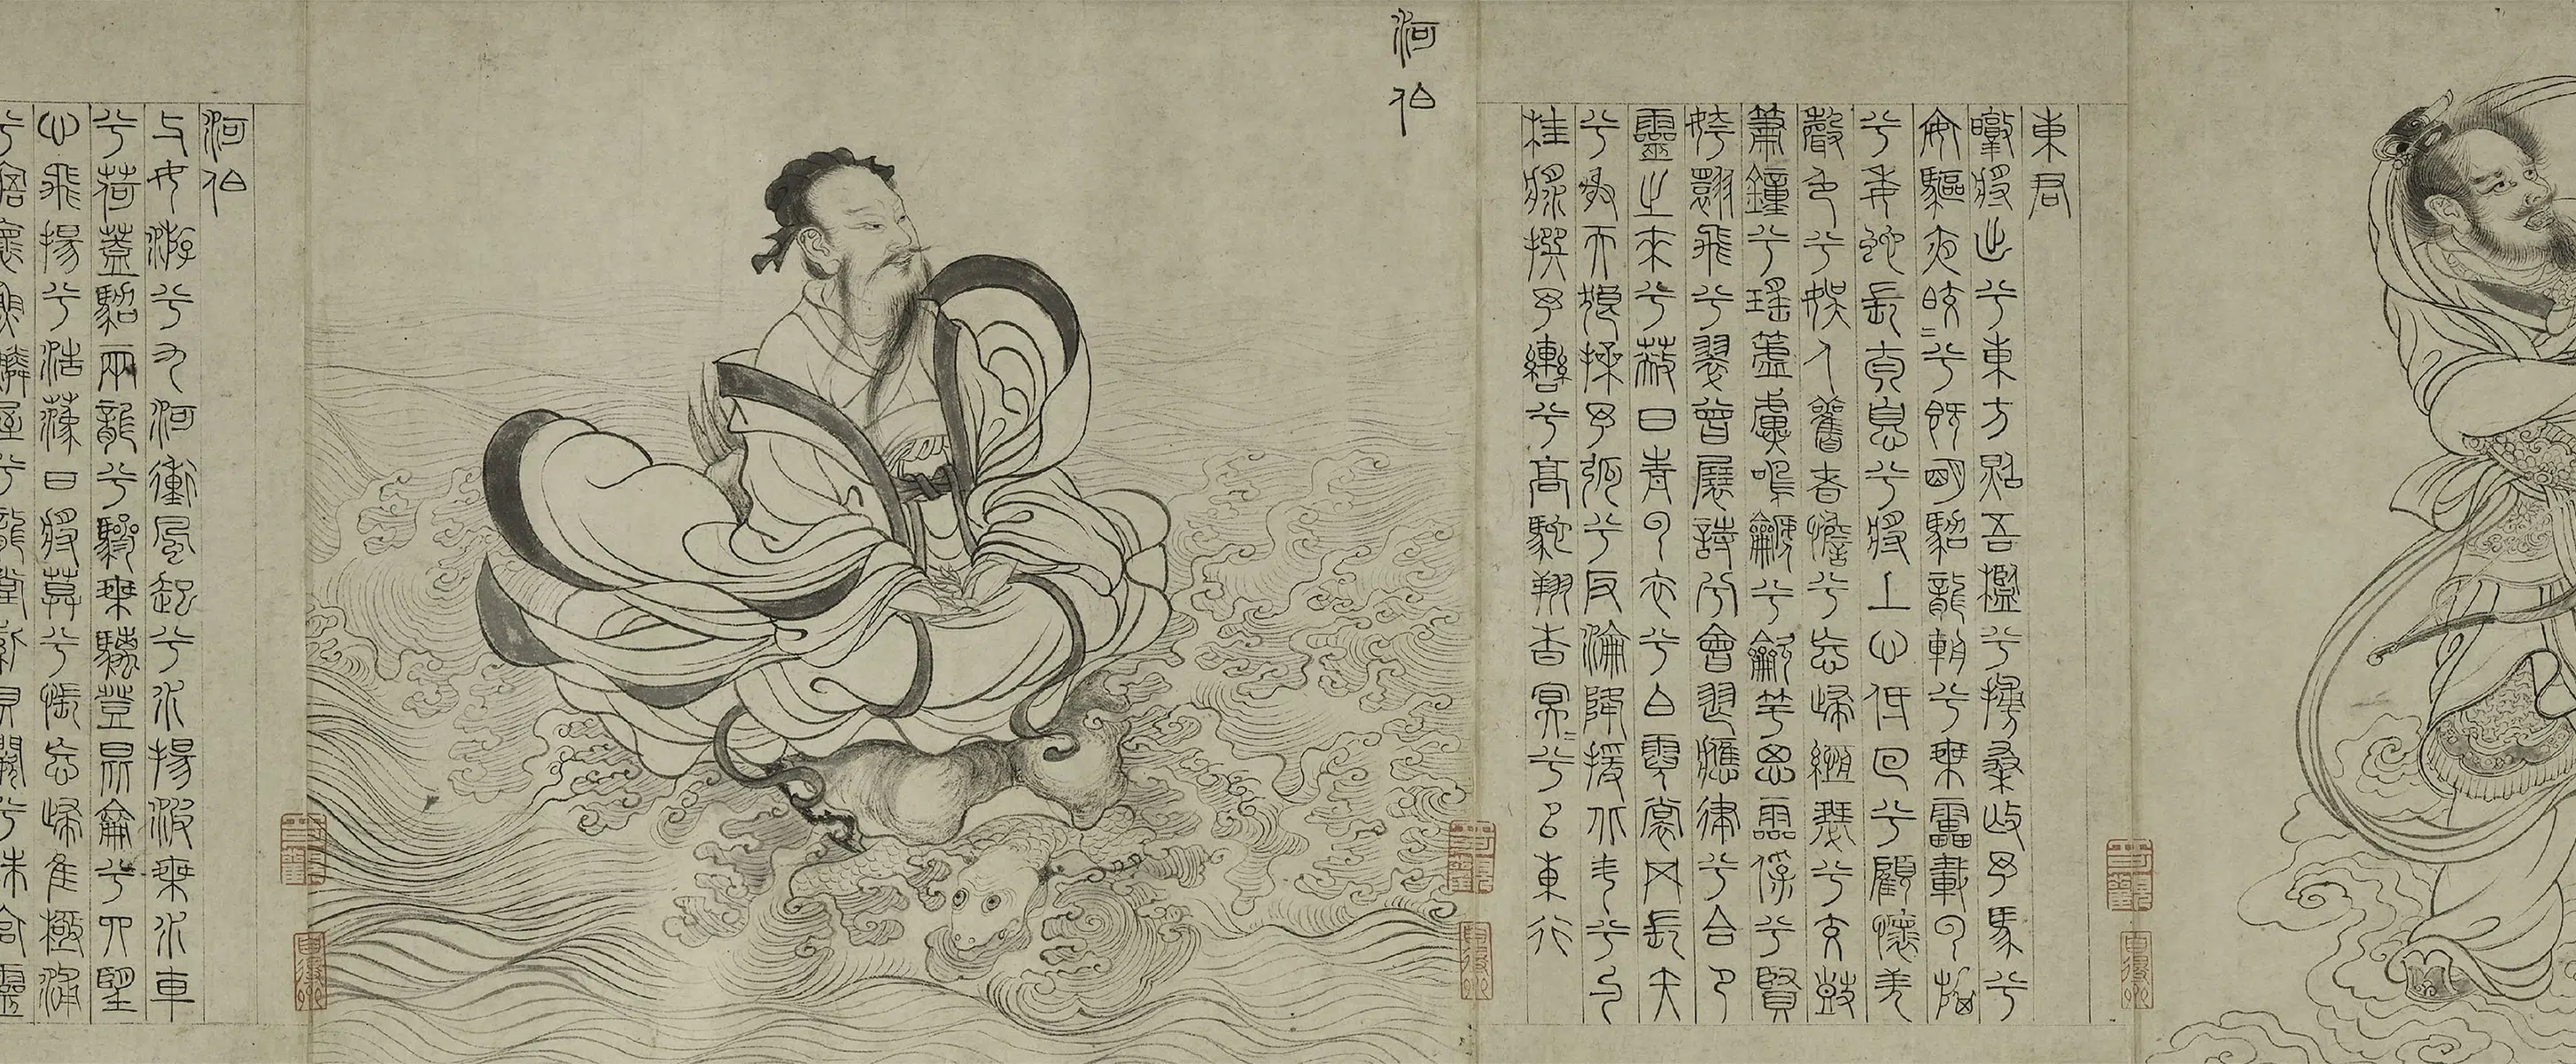 東君
暾將出兮東方照吾檻兮扶桑撫予馬兮
安驅夜晈〻兮既明駕龍輈兮乘靁載雲旗
兮委蛇長太息兮將上心低回兮顧懷羌
聲色兮娛人觀者憺兮忘歸緪瑟兮交鼓
簫鐘兮瑤簴鳴篪兮龡竽思靈保兮賢
姱翾飛兮翠曾展詩兮會舞應律兮合節
靈之來兮蔽日青雲衣兮白霓裳舉長矢
兮射天狼操予弧兮反淪降援北斗兮酌
桂漿撰予轡兮高駝翔杳冥〻兮以東行
河伯
河伯
與女游兮九河衝風起兮水揚波乘水車
兮荷蓋駕兩龍兮驂乘螭登崑崙兮四望
心飛揚兮浩蕩日將暮兮悵忘歸惟極浦
兮寤懷魚鱗屋兮龍堂紫貝闕兮朱宮靈